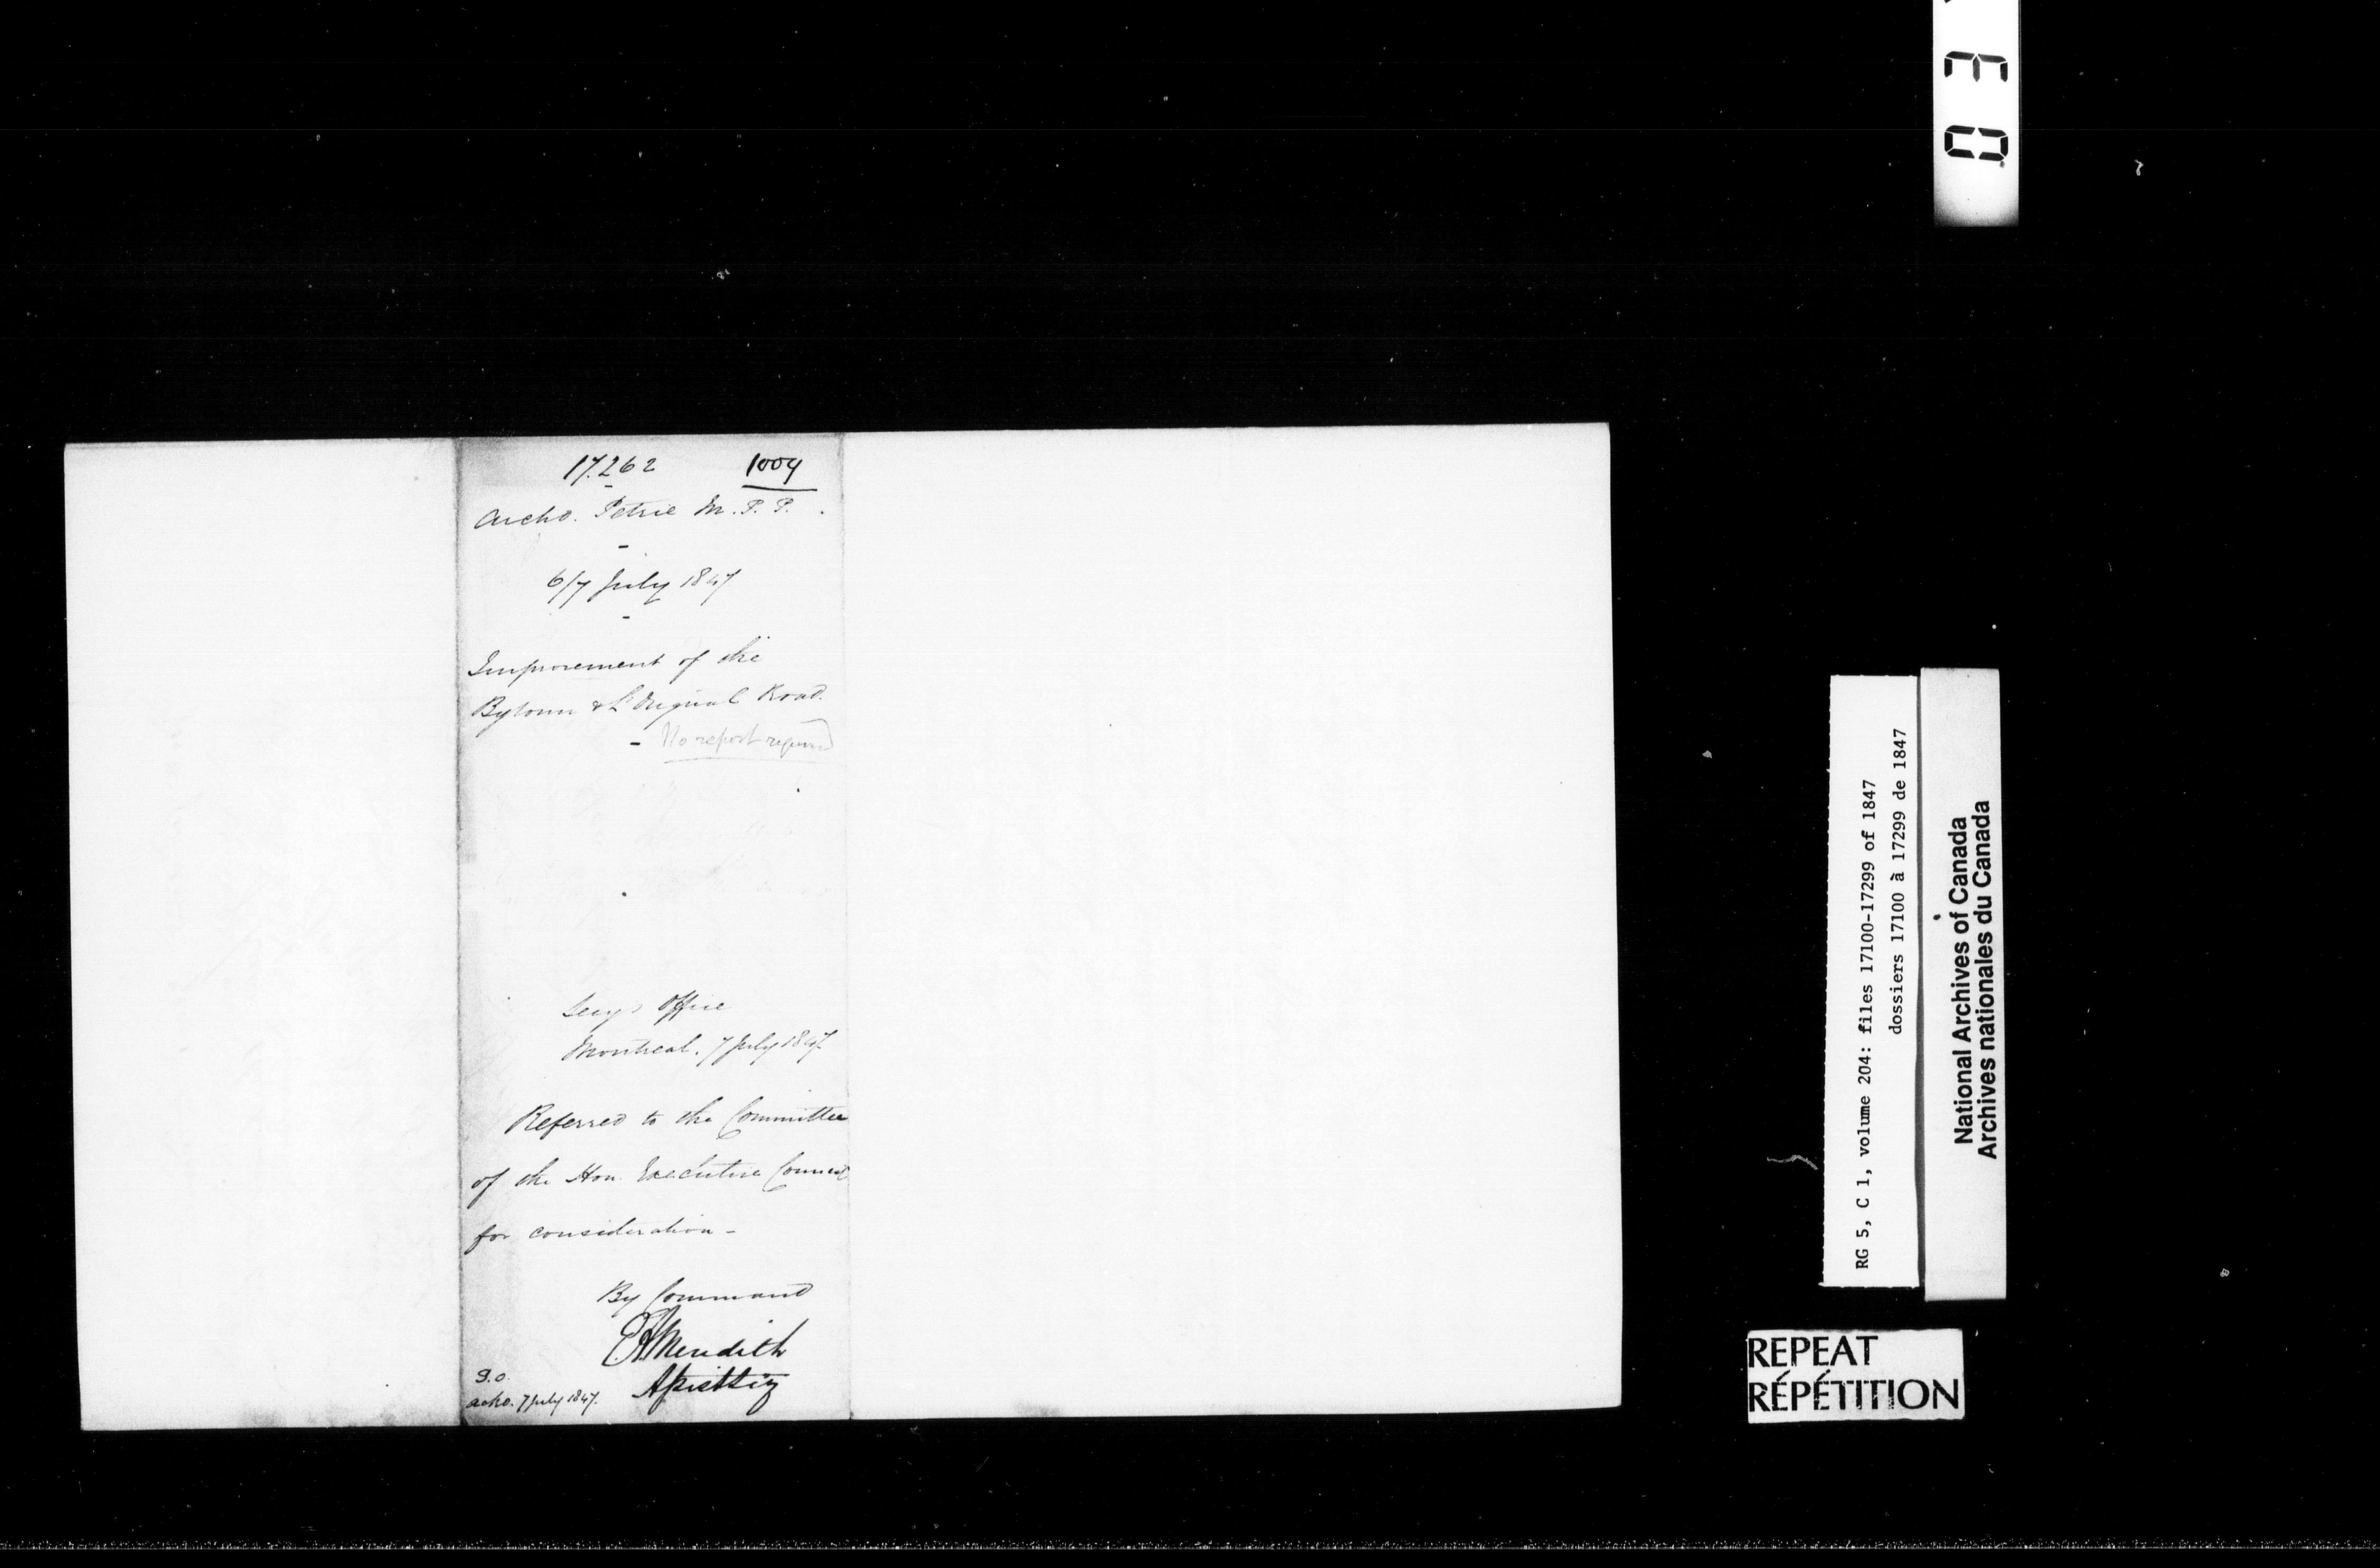 17.262 1004
Archd. Petrie M.P.P.
6/7 July 1847
Improvement of the
Bytown & L'Orignal Road.
No report required
Secy's Office
Montreal. 7 July 1847.
Referred to the Committee
of the Hon. Executive Council
for consideration -
By Command
E A Meredith
Asst Secy
ackd. 7 July 1847.
03
RG 5, C 1, volume 204: files 17100-17299 of 1847
dossiers 17100 à 17299 de 1847
National Archives of Canada
Archives nationales du Canada
REPEAT
RÉPÉTITION